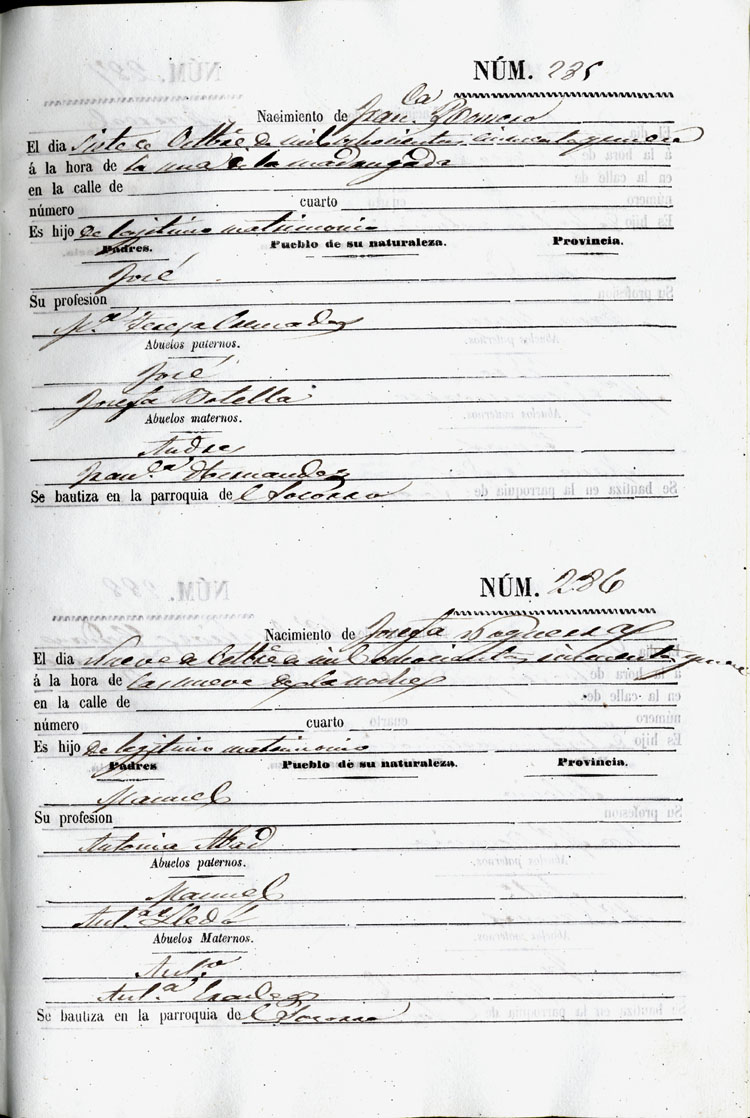 NÚM. 285
Nacimiento de Fran.ca Romero
El dia siete de Octbre de mil ochocientos cincuenta y
á la hora de la una de la madrugada
en la calle de
número cuarto
Es hijo de legitimo matrimonio
Padres. Pueblo de su naturaleza. Provincia.
José
Su profesión
M.a Teresa
Abuelos paternos.
José
Josefa Botella
Abuelos maternos.
Andres
Fran.ca Hernandez
Se bautiza en la parroquia del Socorro
NÚM. 286
Nacimiento de Josefa Noguera
El dia Nueve de Octbre de mil ochocientos cincuenta y
á la hora de las nueve de la noche
en la calle de
número cuarto
Es hijo de legitimo matrimonio
Padres Pueblo de su naturaleza. Provincia.
Manuel
Su profesión
Antonia Abad
Abuelos paternos.
Manuel
Ant.a Lledó
Abuelos Maternos.
Ant.o
Ant.a
Se bautiza en la parroquia del Socorro